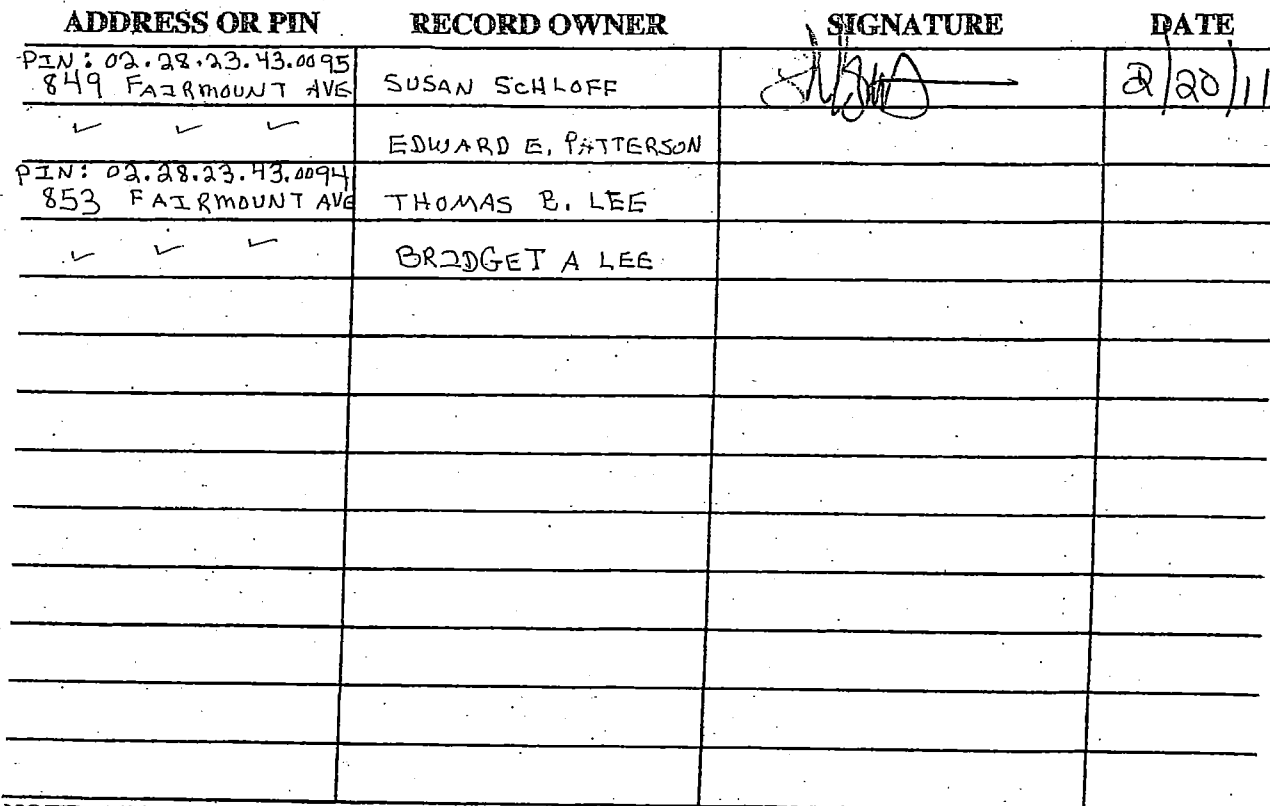 ADDRESS OR PIN RECORD OWNER SIGNATURE DATE
PIN: 02.28.23.43.0095
849 FAIRMOUNT AVE SUSAN SCHLOFF 2/20/11
EDWARD E. PATTERSON
PIN: 02.28.23.43.0094
853 FAIRMOUNT AVE THOMAS B. LEE
BRIDGET A LEE